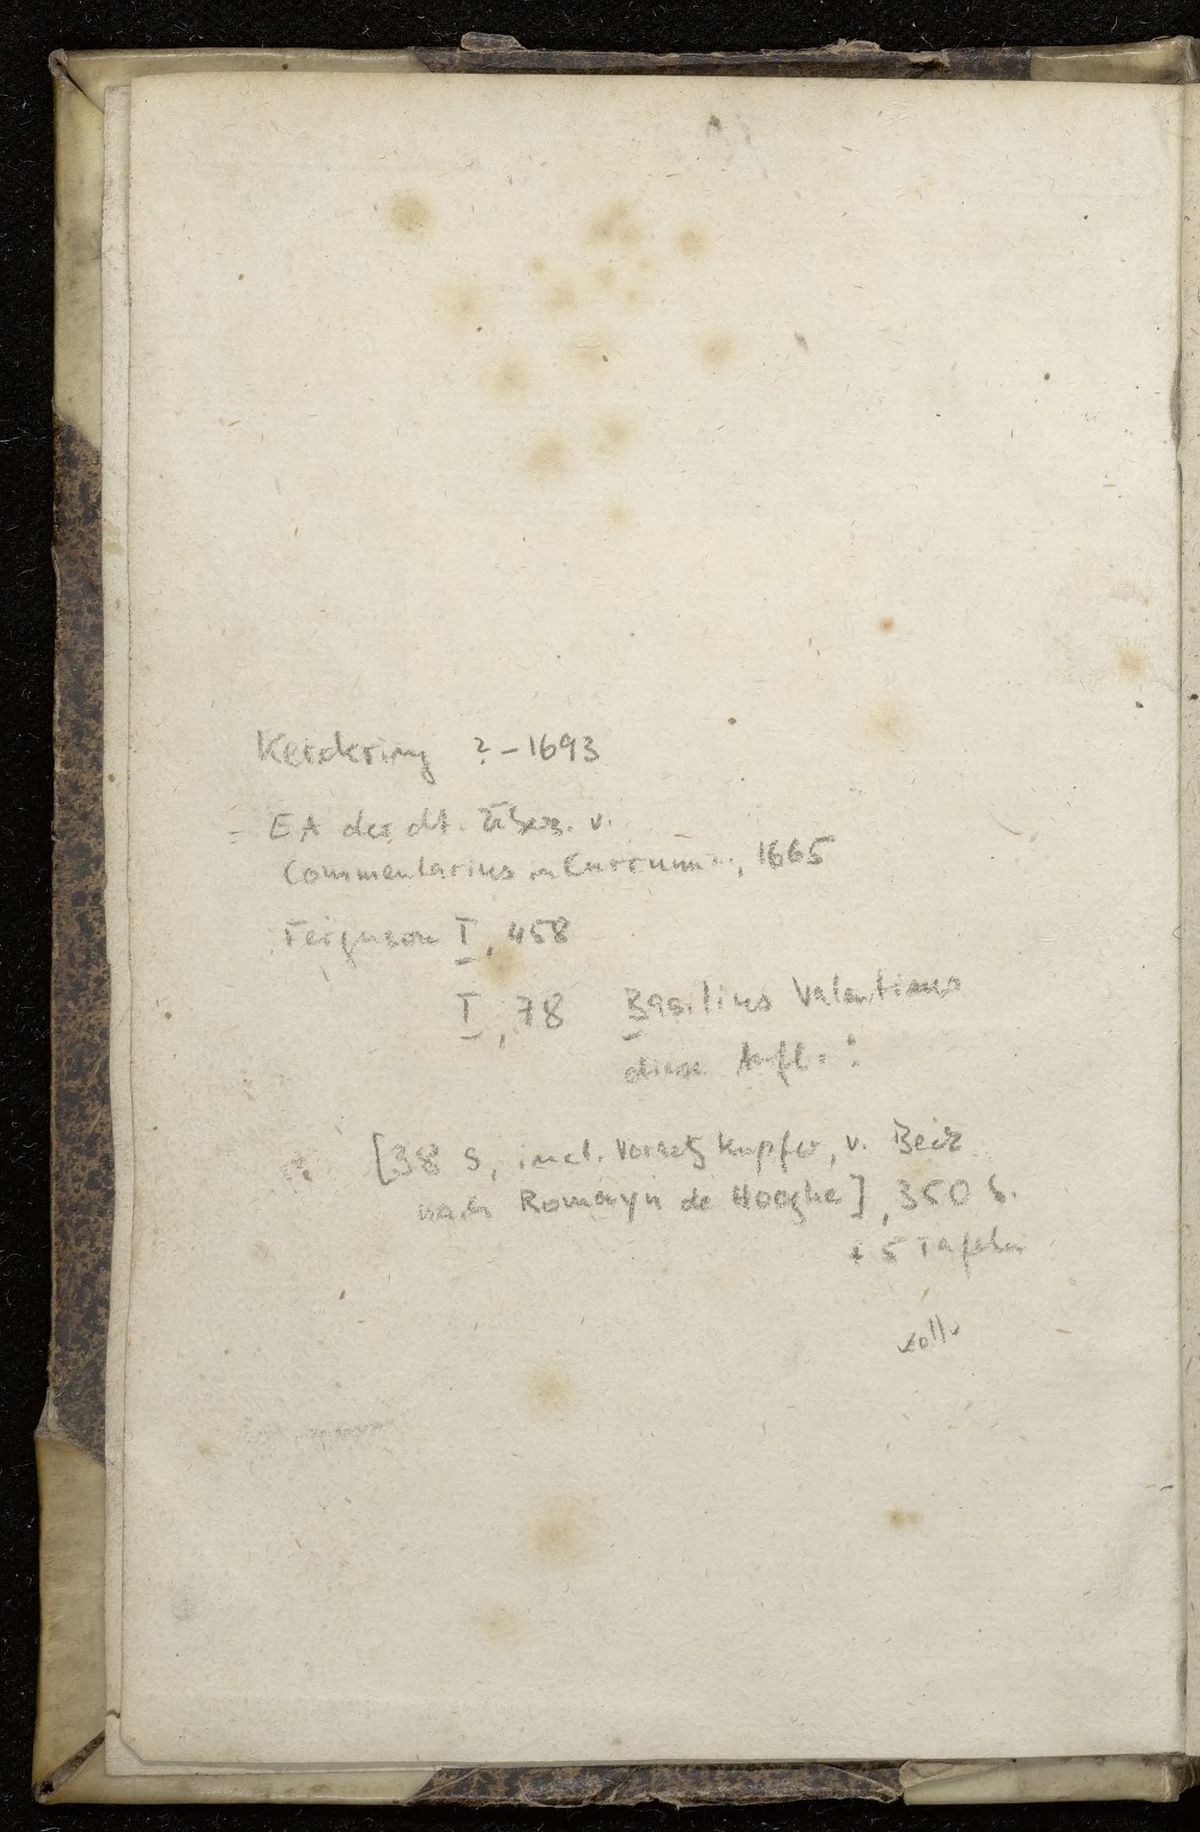 Kerckring ? - 1693
= EA der dt. Übers. v.
Commentarius in Currum .., 1665
Ferguson I, 458
I, 78 Basilius Valentinus
diese Aufl. :
[38 S, incl. Vorsatzkupfer, v.
nach Romayn de Hooghe], 350 S.
+ 5 Tafeln
voll.